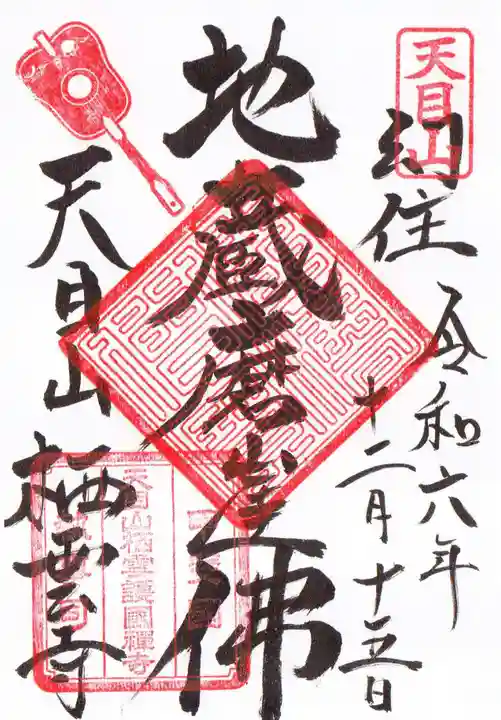 天目山
幻住
令和六年
十二月十五日
地蔵磨崖佛
天目山栖雲寺
天目山栖雲護國禪寺